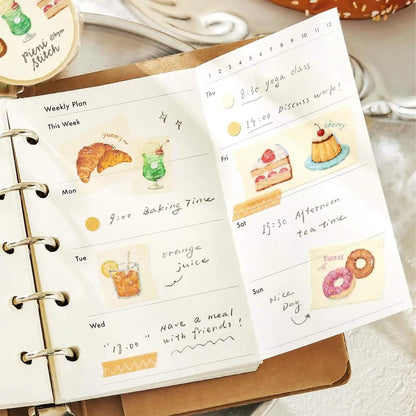 pieni
stitch
Weekly Plan
This Week
yummy~
Mon
9:00 Baking Time
Tue
orange
juice
Wed
"13:00" Have a meal
with friends!
1 2 3 4 5 6 7 8 9 10 11 12
Thu
8:30 yoga class
14:00 Discuss work!
Fri
cherry
Sat
15:30 Afternoon
tea time
Sweet
Sun
Nice
Day